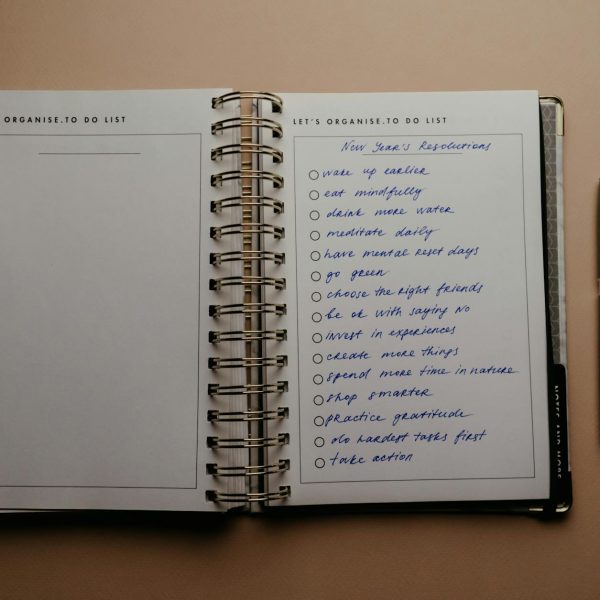 ORGANISE.TO DO LIST
LET'S ORGANISE.TO DO LIST
New Year's Resolutions
wake up earlier
eat mindfully
drink more water
meditate daily
have mental reset days
go green
choose the right friends
be ok with saying no
invest in experiences
create more things
spend more time in nature
shop smarter
practice gratitude
do hardest tasks first
take action
NOTES AND MORE